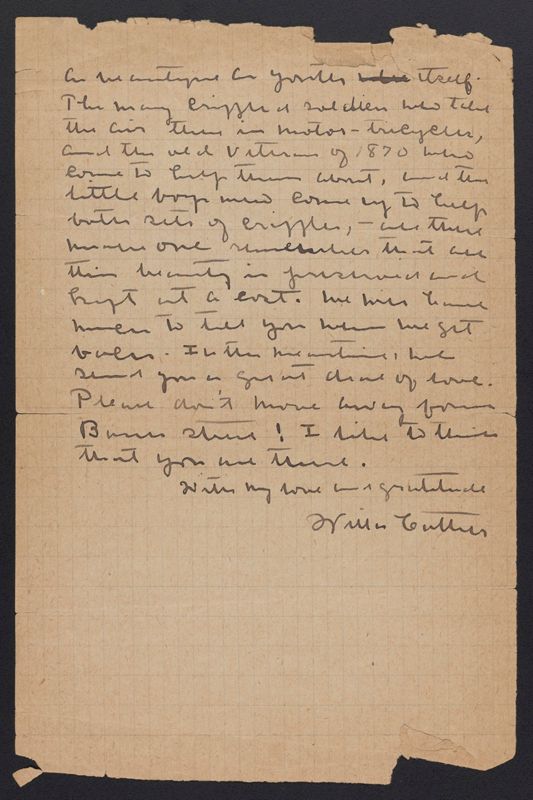 as beautiful as youth itself.
The many crippled soldiers who take
the air there in motor-tricycles,
and the old Veterans of 1870 who
come to help them about, and the
little boys who come up to help
both sets of cripples, - all these
make one remember that all
this beauty is preserved and
kept at a cost. We will have
much to tell you when we get
back. In the meantime, we
send you a great deal of love.
Please don't move away from
Bank street! I like to think
that you are there.
With my love and gratitude
Willa Cather